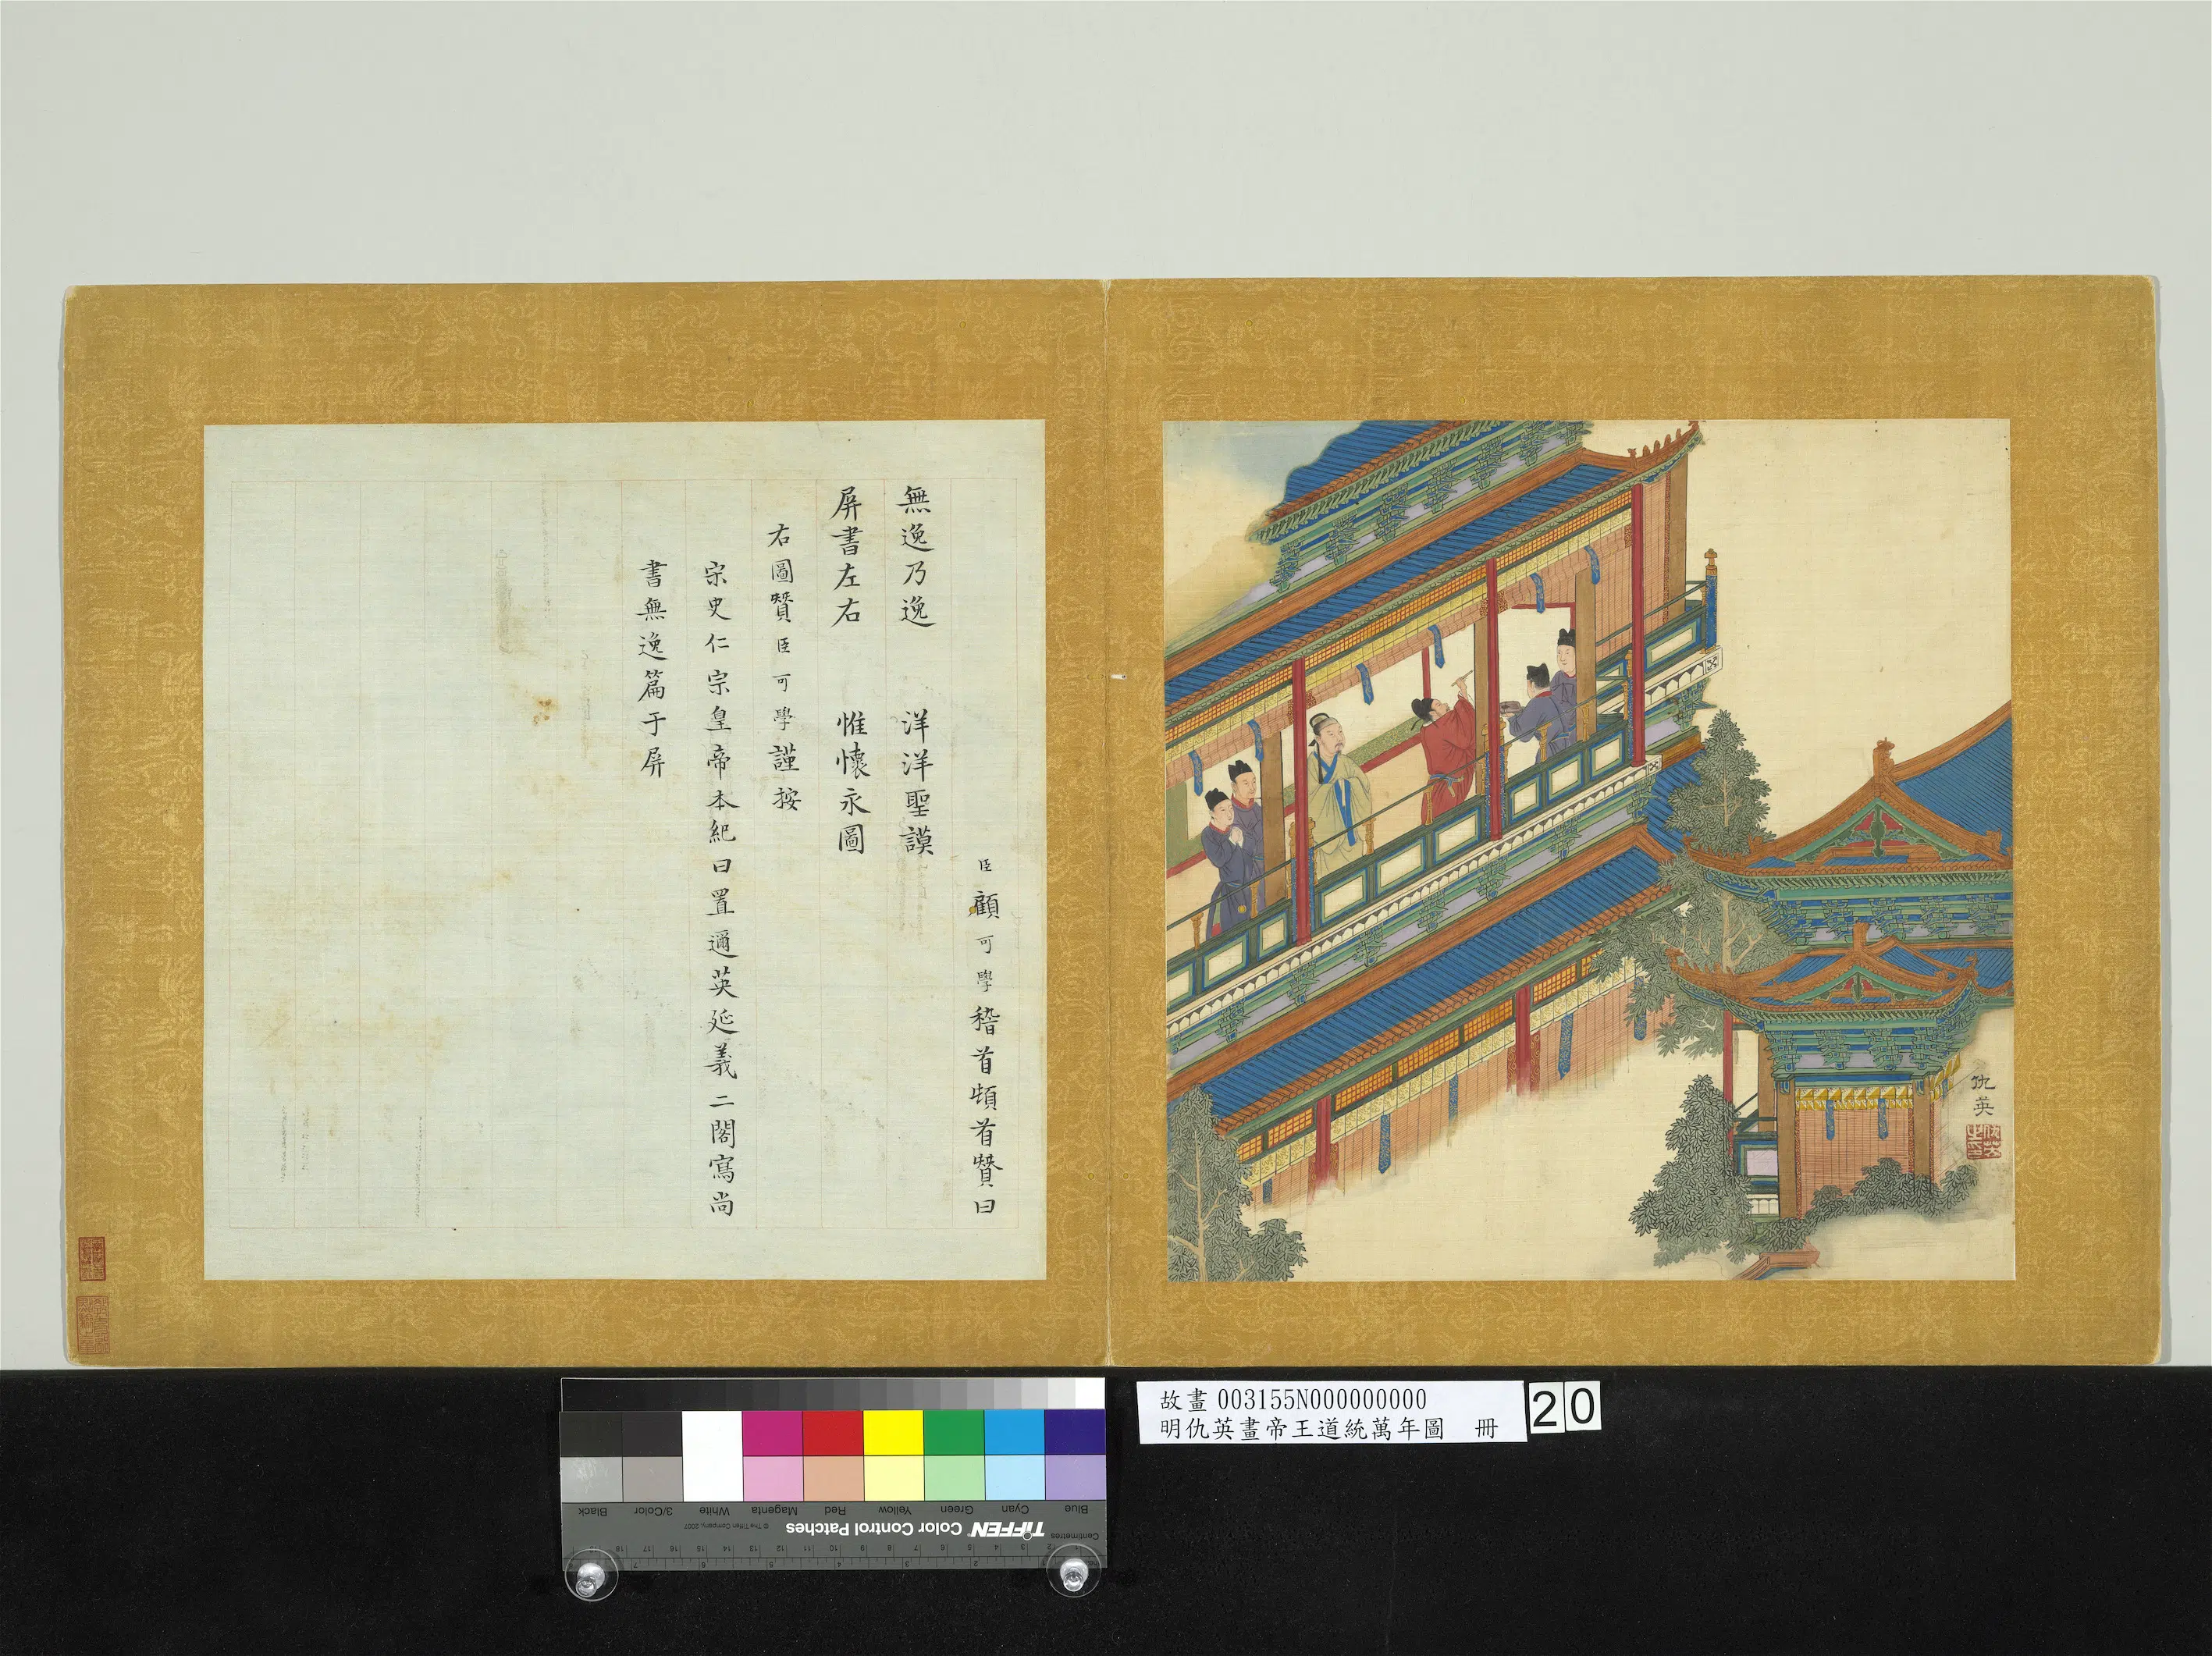 臣顧可學稽首頓首贊曰
無逸乃逸 洋洋聖謨
屏書左右 惟懷永圖
右圖贊臣可學謹按
宋史仁宗皇帝本紀曰置邇英延義二閣寫尚
書無逸篇于屏
仇英
故畫 003155N000000000
明仇英畫帝王道統萬年圖 冊
20
Black
3/Color
White
Magenta
Red
Yellow
Green
Cyan
Blue
TIFFEN Color Control Patches
© The Tiffen Company, 2007
Centimetres